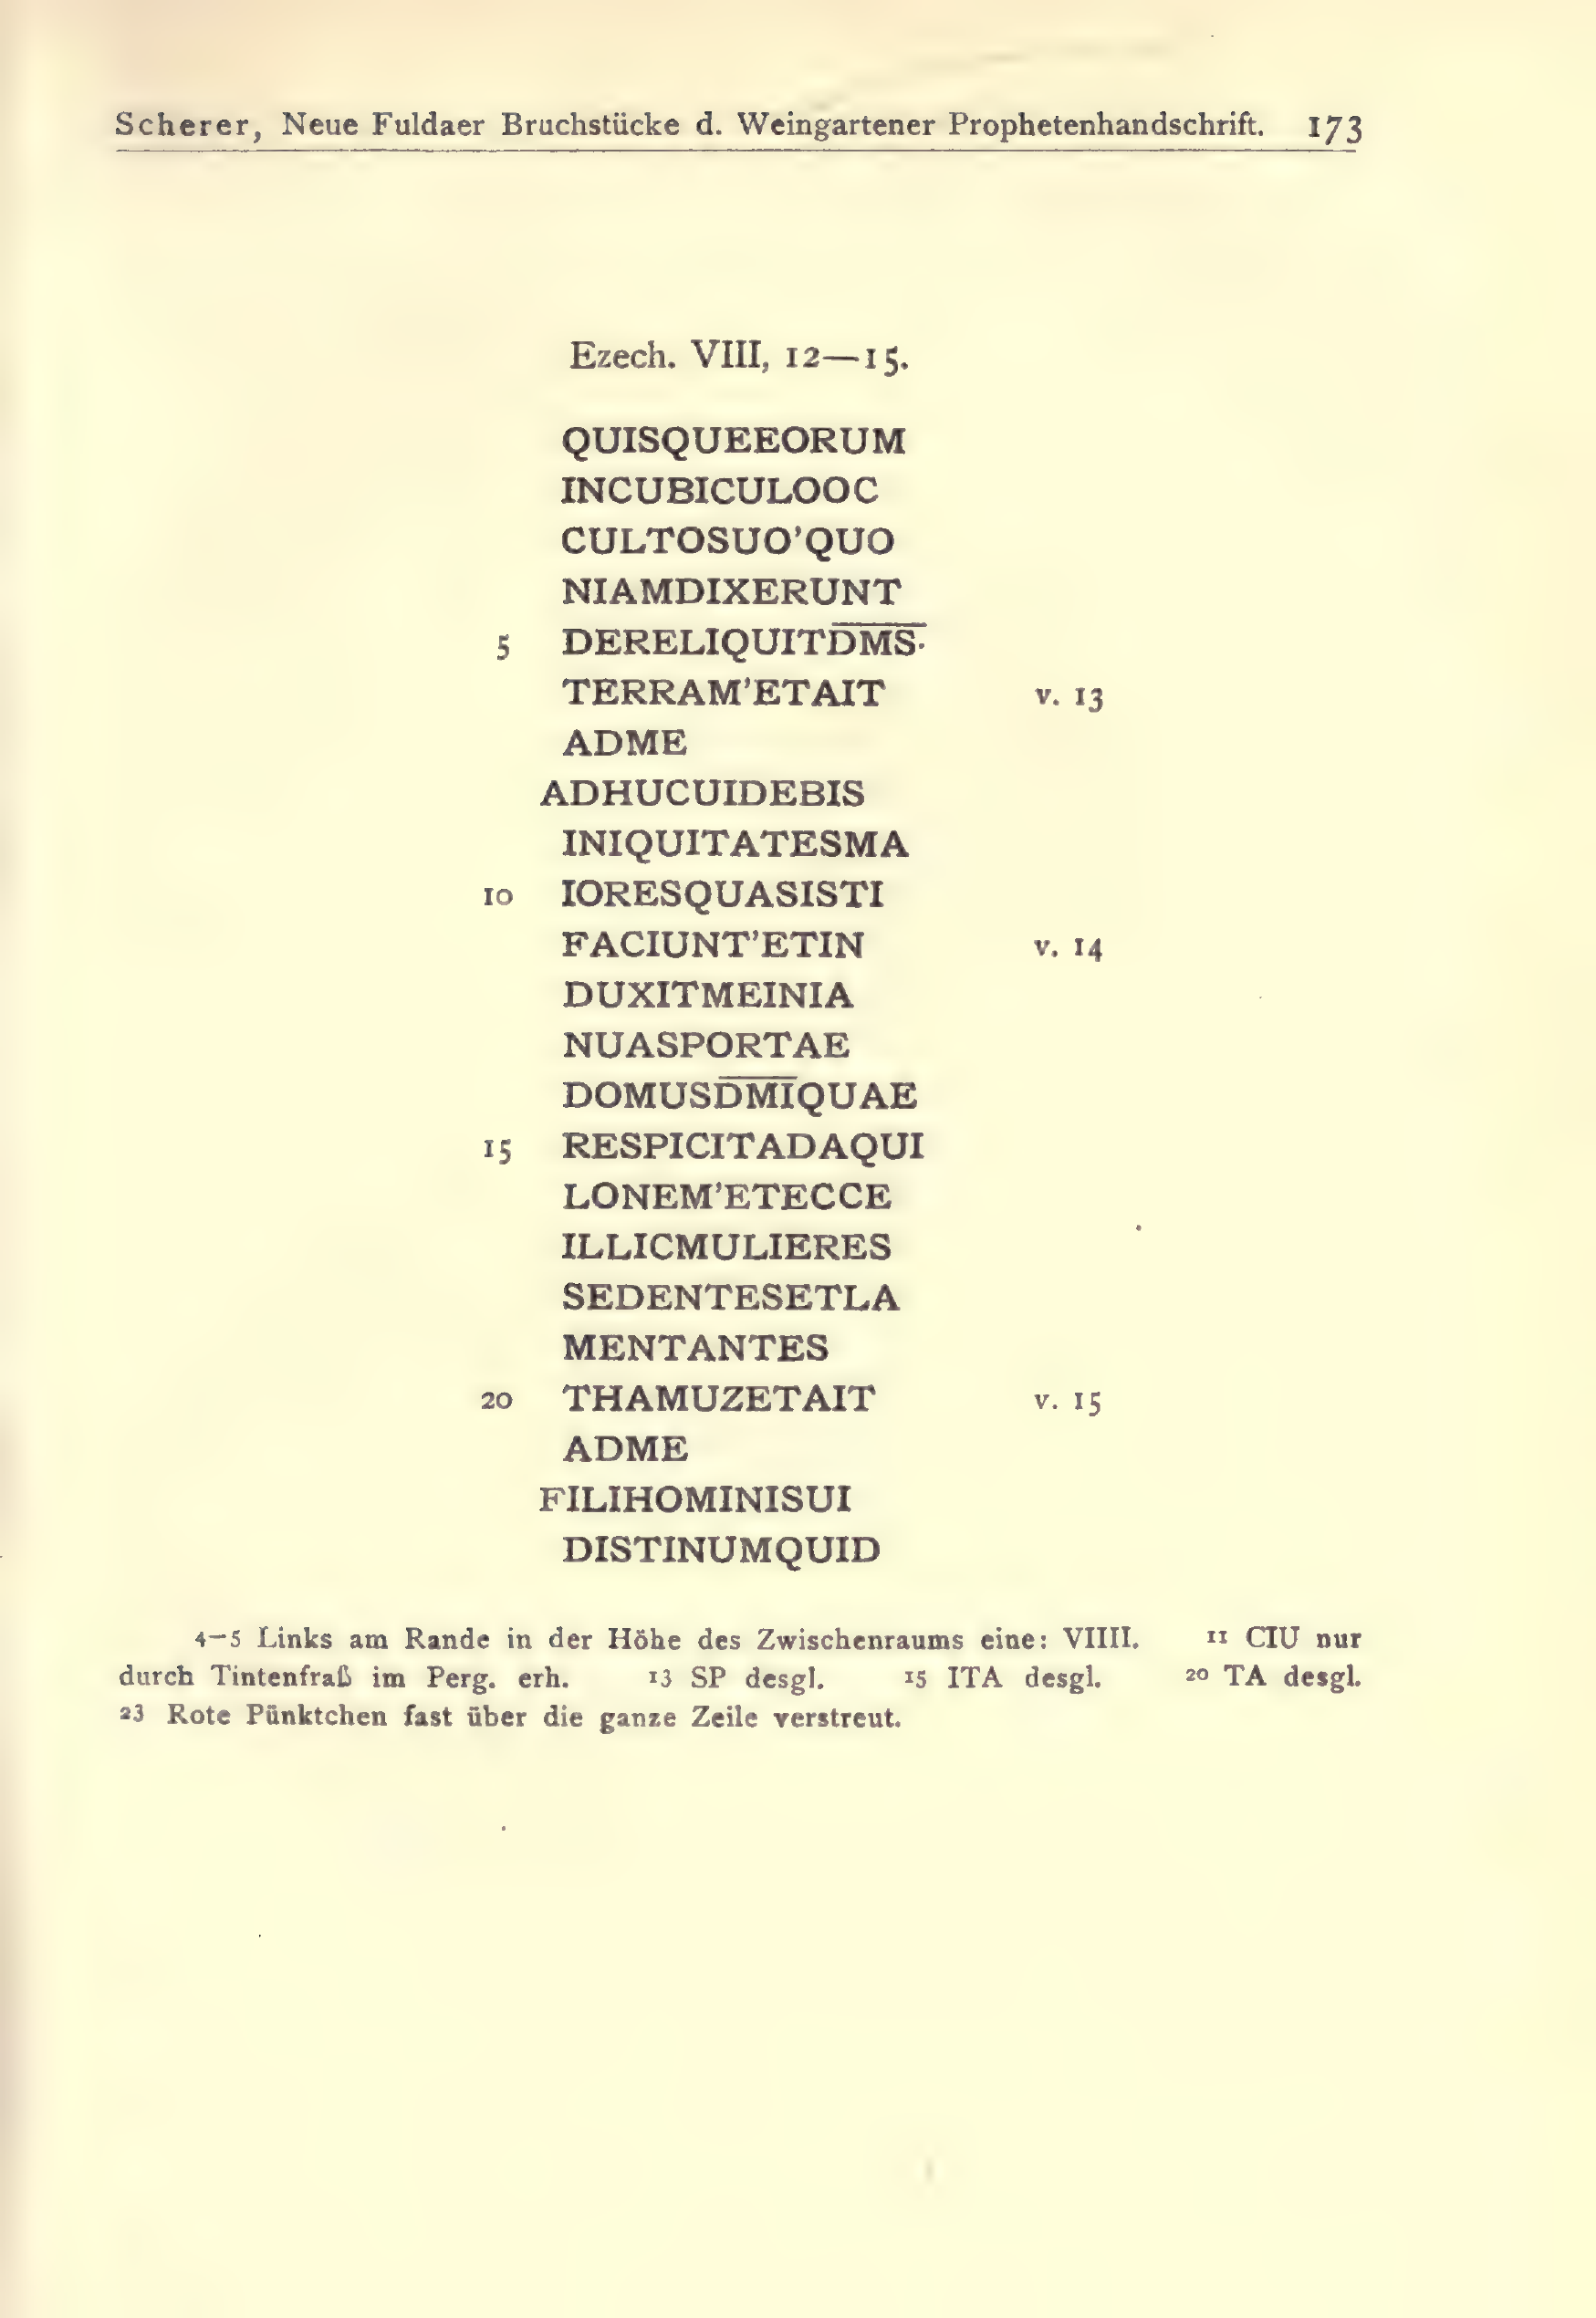 Scherer, Neue Fuldaer Bruchstücke d. Weingartener Prophetenhandschrift. 173
Ezech. VIII, 12—15.
QUISQUEEORUM
INCUBICULOOC
CULTOSUO'QUO
NIAMDIXERUNT
5 DERELIQUITD̅M̅S̅·
TERRAM'ETAIT v. 13
ADME
ADHUCUIDEBIS
INIQUITATESMA
10 IORESQUASISTI
FACIUNT'ETIN v. 14
DUXITMEINIA
NUASPORTAE
DOMUSD̅M̅I̅QUAE
15 RESPICITADAQUI
LONEM'ETECCE
ILLICMULIERES
SEDENTESETLA
MENTANTES
20 THAMUZETAIT v. 15
ADME
FILIHOMINISUI
DISTINUMQUID
4—5 Links am Rande in der Höhe des Zwischenraums eine: VIIII. 11 CIU nur
durch Tintenfraß im Perg. erh. 13 SP desgl. 15 ITA desgl. 20 TA desgl.
23 Rote Pünktchen fast über die ganze Zeile verstreut.